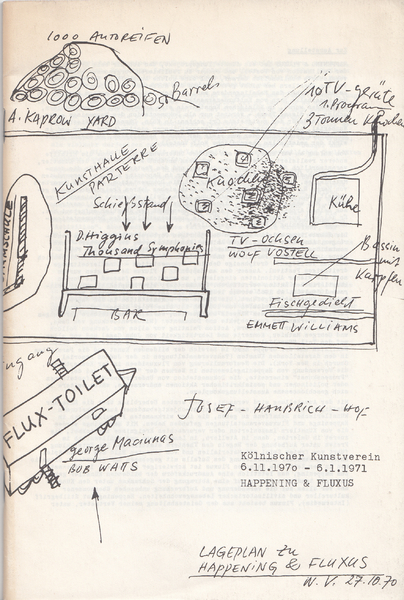 1000 AUTOREIFEN
Barrels
A. KAPROW YARD
10 TV-Geräte
1. Programm
3 Tonnen Knochen
KUNSTHALLE
PARTERRE
Schießstand
Knochen
Kühe
D. Higgins
Thousand Symphonies
TV-OCHSEN
WOLF VOSTELL
Bassin
mit
Karpfen
BAR
Fischgedicht
EMMETT WILLIAMS
FLUX-TOILET
george Maciunas
BOB WATTS
JOSEF-HAUBRICH-HOF
Kölnischer Kunstverein
6.11.1970 - 6.1.1971
HAPPENING & FLUXUS
LAGEPLAN zu
HAPPENING & FLUXUS
W. V. 27.10.70